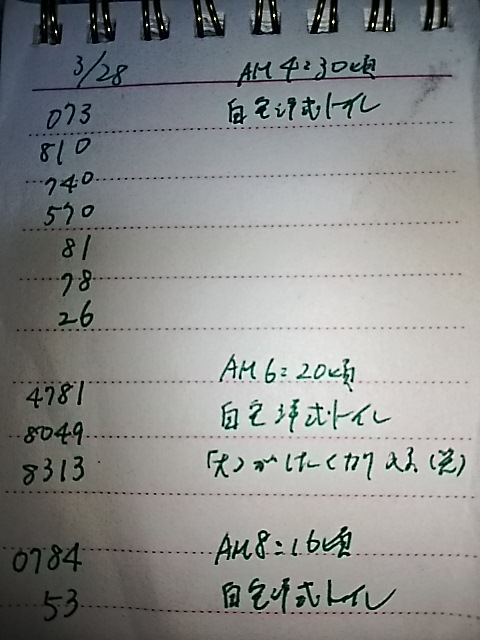 3/28 AM 4:30頃
073 自宅洋式トイレ
810
740
570
81
78
26
AM 6:20頃
4781 自宅洋式トイレ
8049
8313 「大」がしたく (覚)
0784 AM 8:16頃
53 自宅洋式トイレ